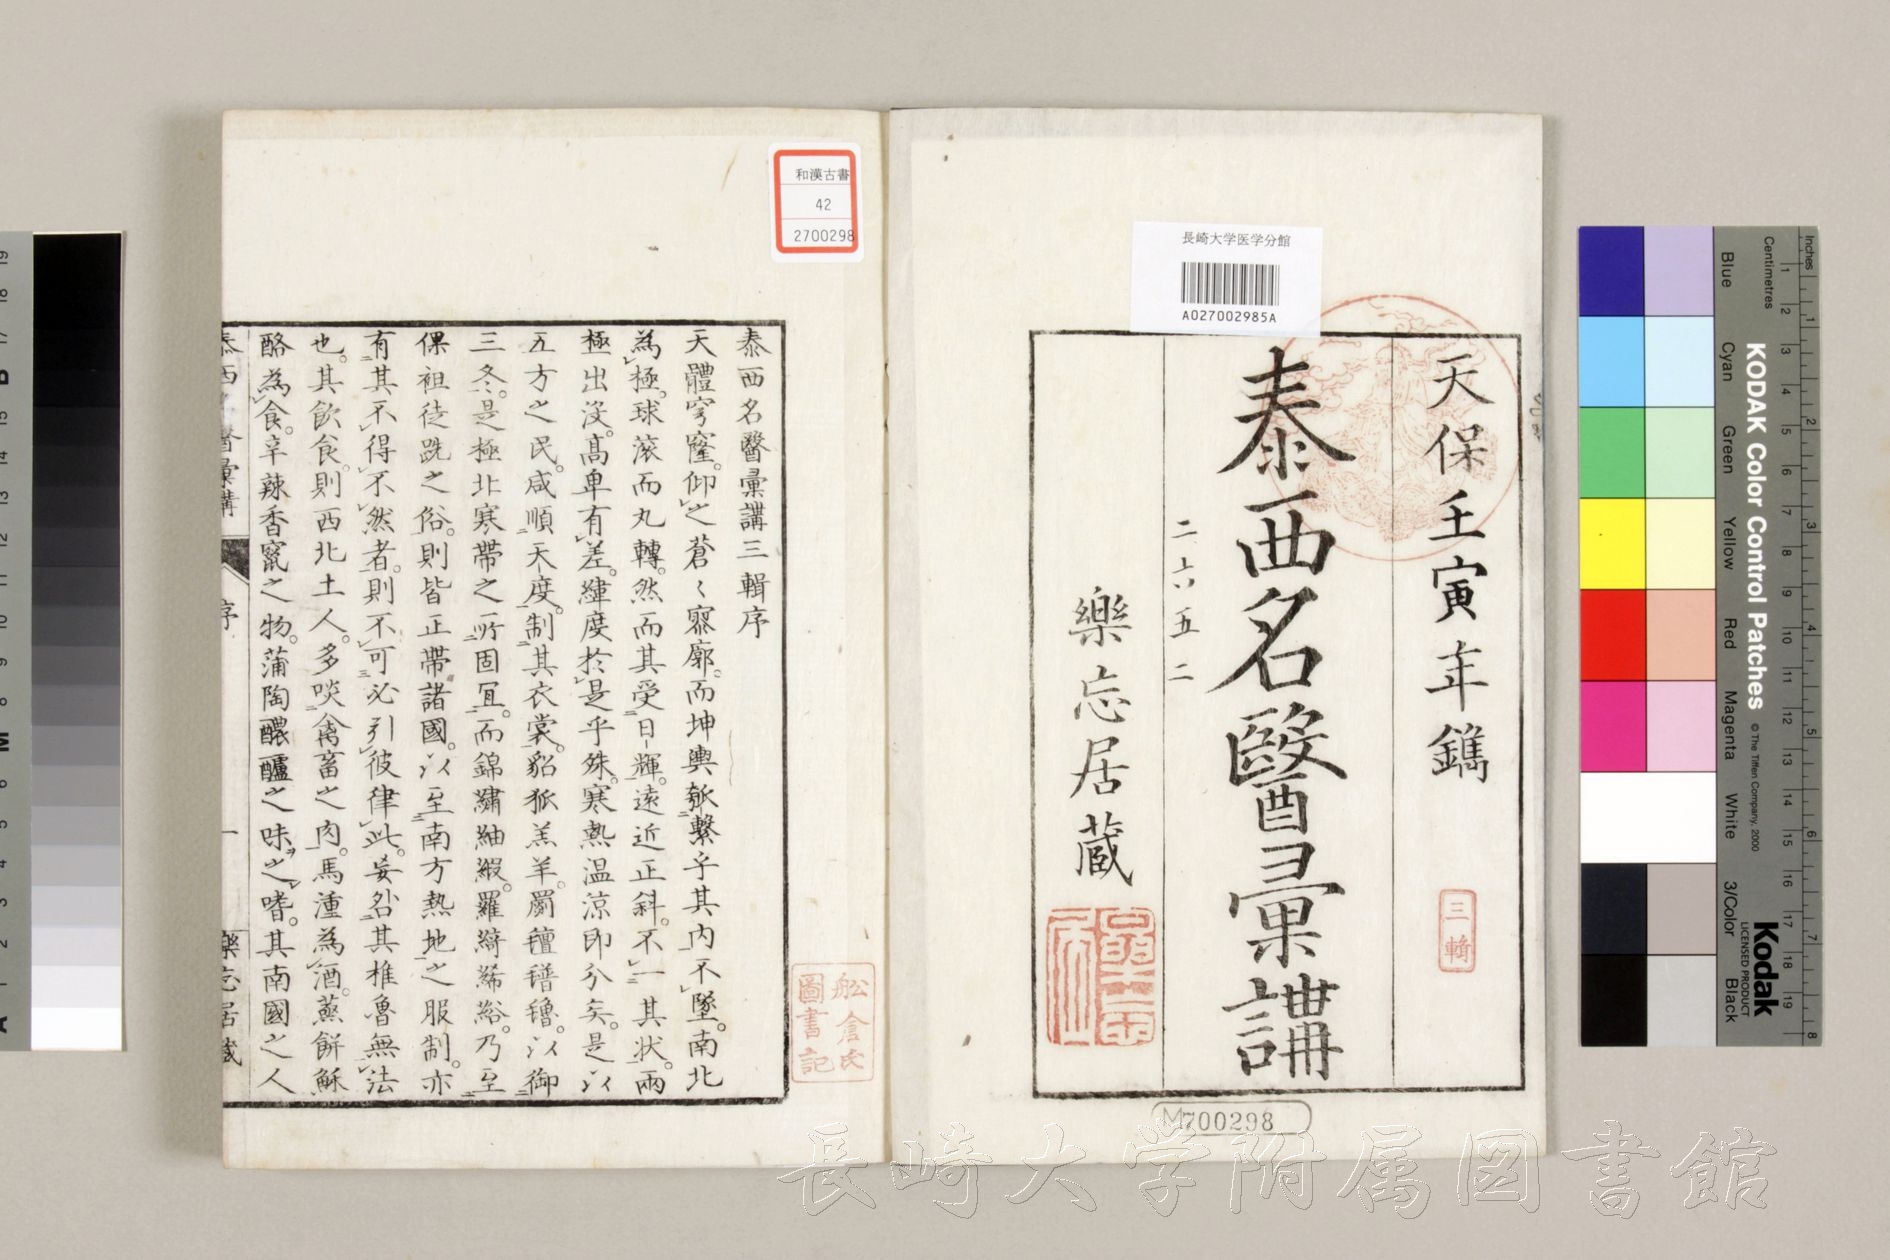 天保壬寅年鐫
泰西名醫彙講
三輯
二六五二
樂忘居蔵
長崎大学医学分館
A027002985A
M700298
和漢古書
42
2700298
泰西名醫彙講三輯序
天體穹窿。仰之蒼〻寥廓。而坤輿瓠繫乎其內不墜。南北
為極。球滾而丸轉。然而其受日輝。遠近正斜。不一其狀。兩
極出沒。高卑有差。緯度於是乎殊。寒熱温涼即分矣。是以
五方之民。咸順天度。制其衣裳。貂狐羔羊。罽氊氆氌。以御
三冬。是極北寒帶之所固冝。而錦繡紬緞。羅綺絺綌。乃至
倮袒徒跣之俗。則皆正帶諸國。以至南方熱地之服制。亦
有其不得不然者。則不可必引彼律此。妄㕤其椎魯無法
也。其飲食。則西北土人。多啖禽畜之肉。馬湩為酒。蒸餅酥
酪為食。辛辣香竄之物。蒲陶醲醞之味之嗜。其南國之人
泰西名醫彙講
序
一
樂忘居蔵
舩倉氏
圖書記
長崎大学附属図書館
Inches
Centimetres
KODAK Color Control Patches
© The Tiffen Company, 2000
Kodak
LICENSED PRODUCT
Blue
Cyan
Green
Yellow
Red
Magenta
White
3/Color
Black